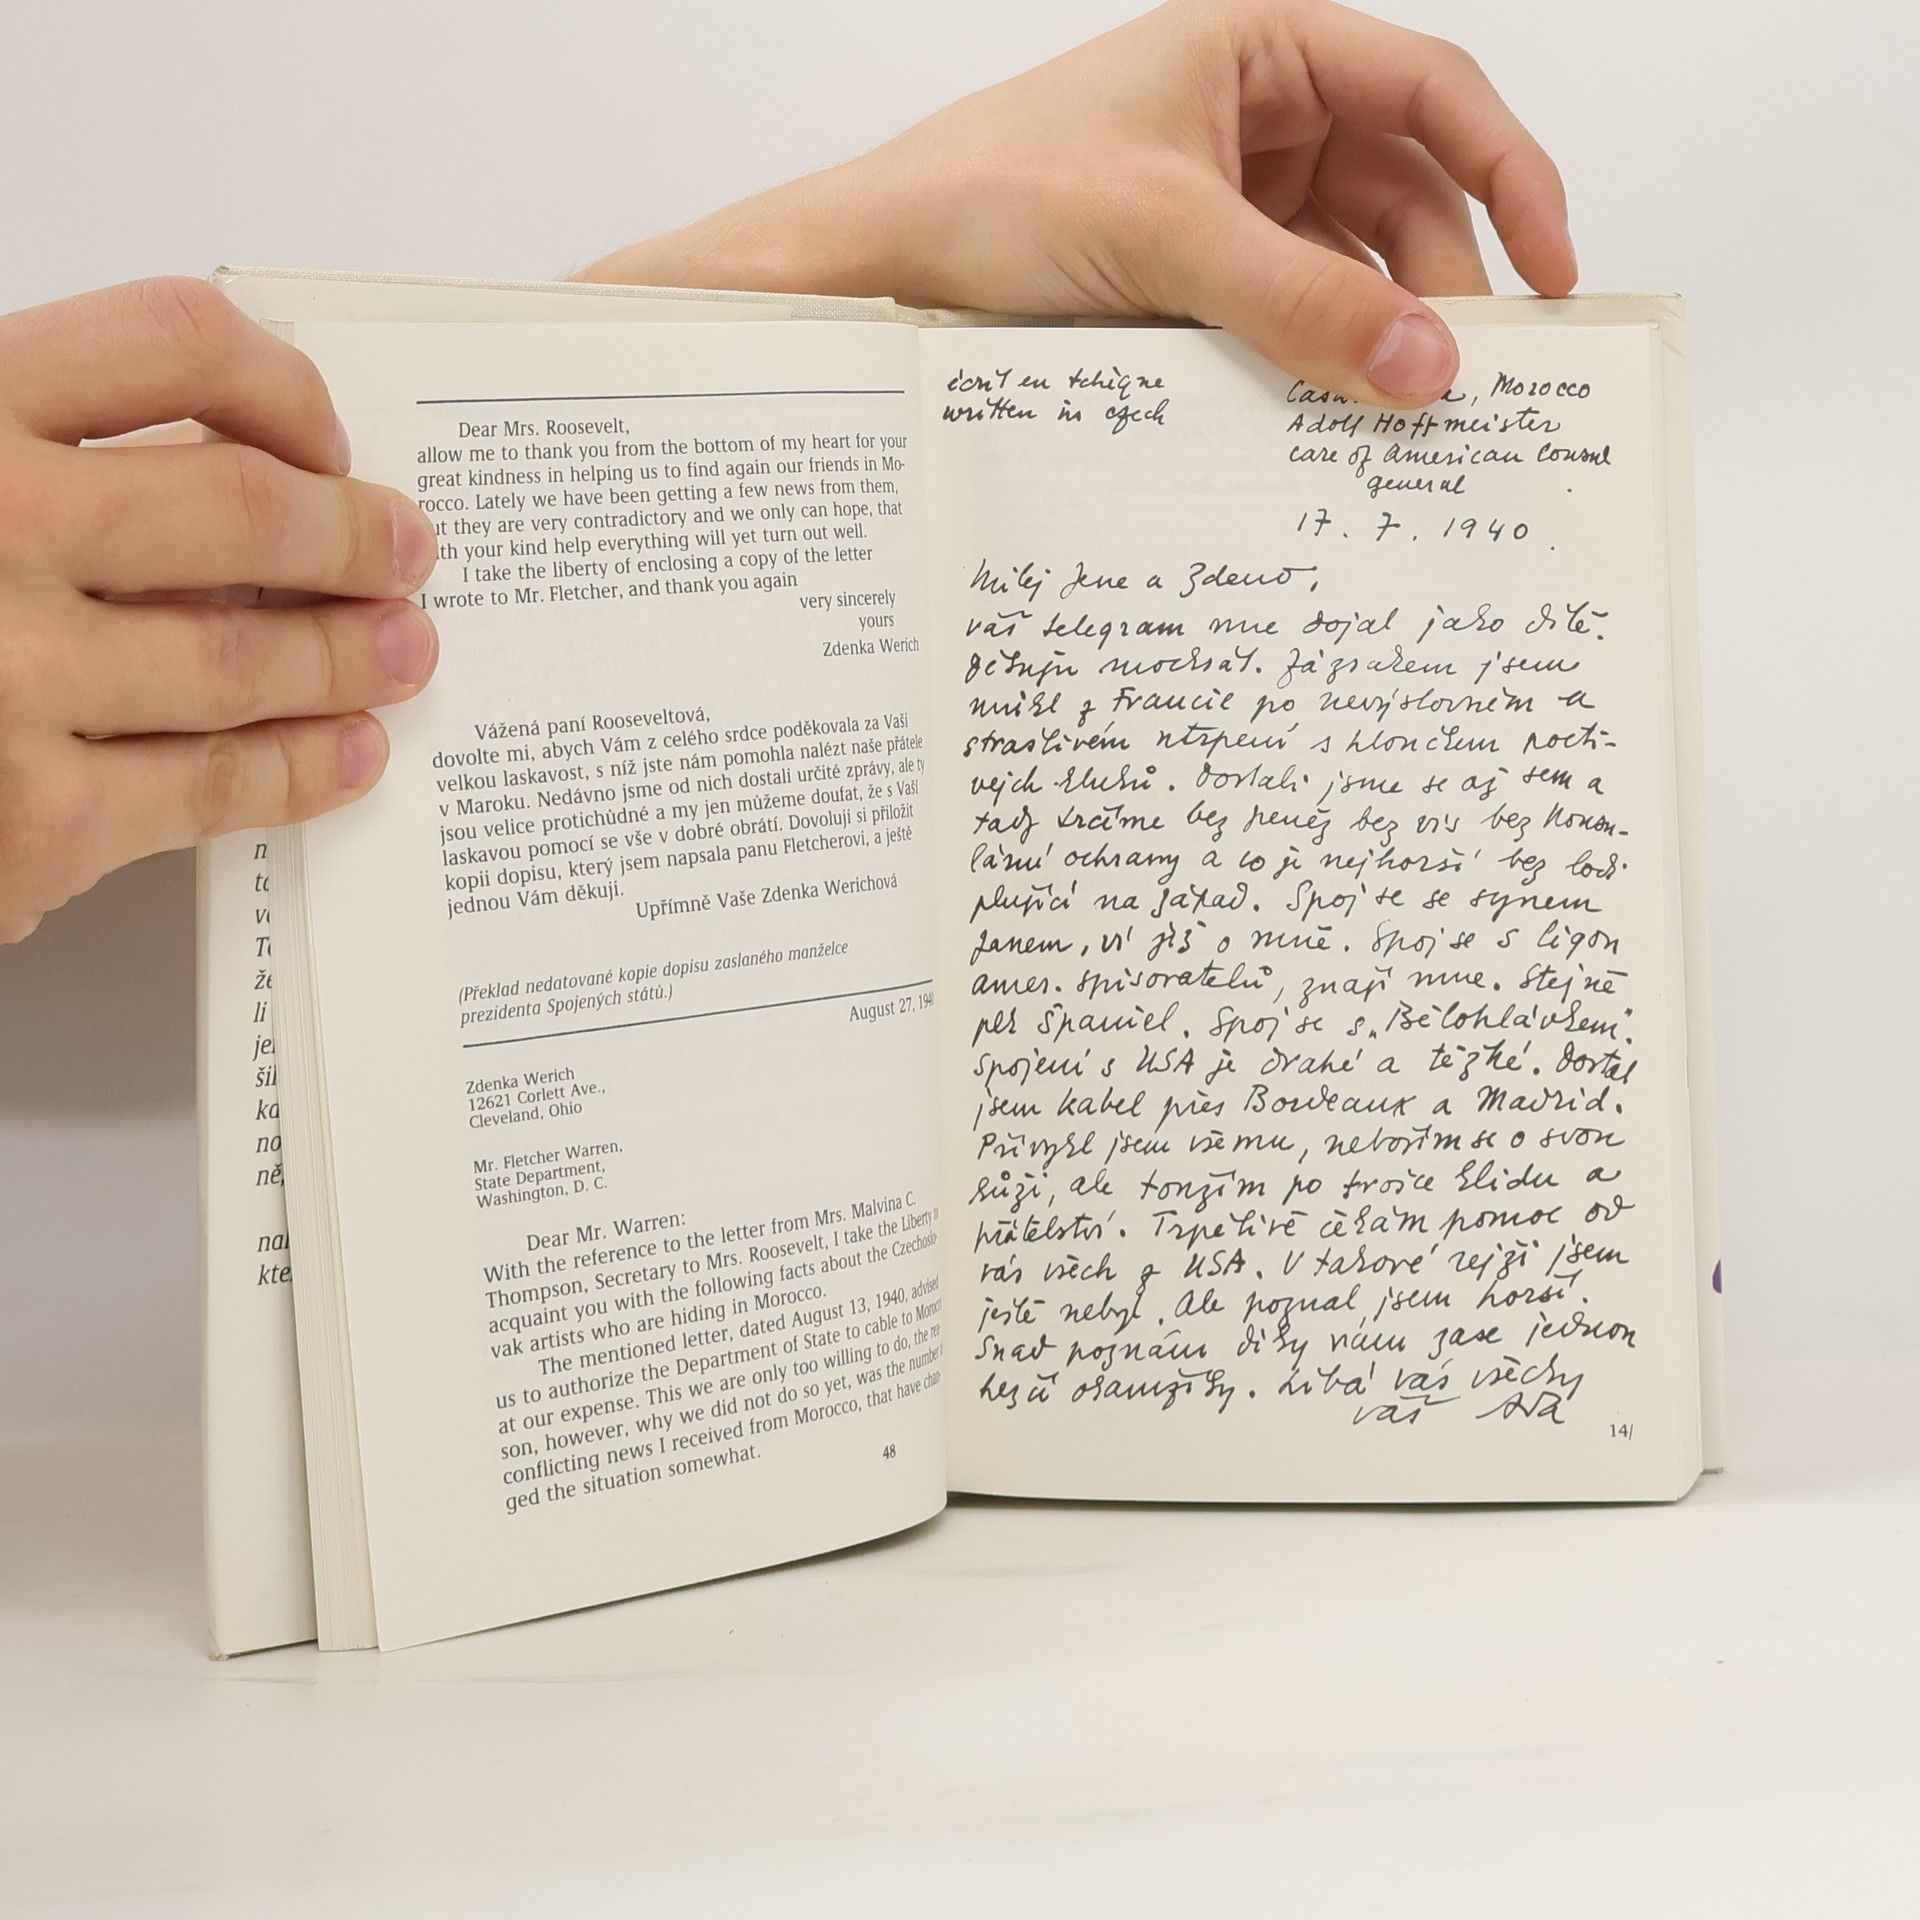 Dear Mrs. Roosevelt,
allow me to thank you from the bottom of my heart for your
great kindness in helping us to find again our friends in Mo-
rocco. Lately we have been getting a few news from them,
ut they are very contradictory and we only can hope, that
th your kind help everything will yet turn out well.
I take the liberty of enclosing a copy of the letter
I wrote to Mr. Fletcher, and thank you again
very sincerely
yours
Zdenka Werich
Vážená paní Rooseveltová,
dovolte mi, abych Vám z celého srdce poděkovala za Vaši
velkou laskavost, s níž jste nám pomohla nalézt naše přátele
v Maroku. Nedávno jsme od nich dostali určité zprávy, ale ty
jsou velice protichůdné a my jen můžeme doufat, že s Vaší
laskavou pomocí se vše v dobré obrátí. Dovoluji si přiložit
kopii dopisu, který jsem napsala panu Fletcherovi, a ještě
jednou Vám děkuji.
Upřímně Vaše Zdenka Werichová
(Překlad nedatované kopie dopisu zaslaného manželce
prezidenta Spojených států.)
August 27, 194
Zdenka Werich
12621 Corlett Ave.,
Cleveland, Ohio
Mr. Fletcher Warren,
State Department,
Washington, D. C.
Dear Mr. Warren:
With the reference to the letter from Mrs. Malvina C.
Thompson, Secretary to Mrs. Roosevelt, I take the Liberty to
acquaint you with the following facts about the Czechoslo
vak artists who are hiding in Morocco.
The mentioned letter, dated August 13, 1940, advised
us to authorize the Department of State to cable to Morocc
at our expense. This we are only too willing to do, the rea
son, however, why we did not do so yet, was the number o
conflicting news I received from Morocco, that have chan
ged the situation somewhat.
48
n
to
v
T
že
li
je
šil
ka
no
ně,
nal
kte
écrit en tchèque
written in czech
Morocco
Adolf Hoffmeister
care of American Consul
general
17. 7. 1940.
Milej Jene a Zdeno,
váš telegram mne dojal jako dítě.
Děkuju mockrát. Zázrakem jsem
unikl z Francie po nevýslovném a
strašlivém utrpení s hloučkem pocti-
vejch kluků. Dostali jsme se až sem a
tady trčíme bez peněz bez vis bez konsu-
lární ochrany a co je nejhorší bez lodi
plující na západ. Spoj se se synem
Janem, ví již o mně. Spoj se s ligou
amer. spisovatelů, znají mne. Stejně
pek Španiel. Spoj se s „Bělohlávkem".
Spojení s USA je drahé a těžké. Dostal
jsem kabel přes Bordeaux a Madrid.
Přivykl jsem všemu, nebojím se o svou
kůži, ale toužím po trošce klidu a
přátelství. Trpělivě čekám pomoc od
vás všech z USA. V takové rejži jsem
ještě nebyl. Ale poznal jsem horší.
Snad poznám díky vám zase jednou
hezčí okamžiky. Líbá vás všecky
váš Ada
14/